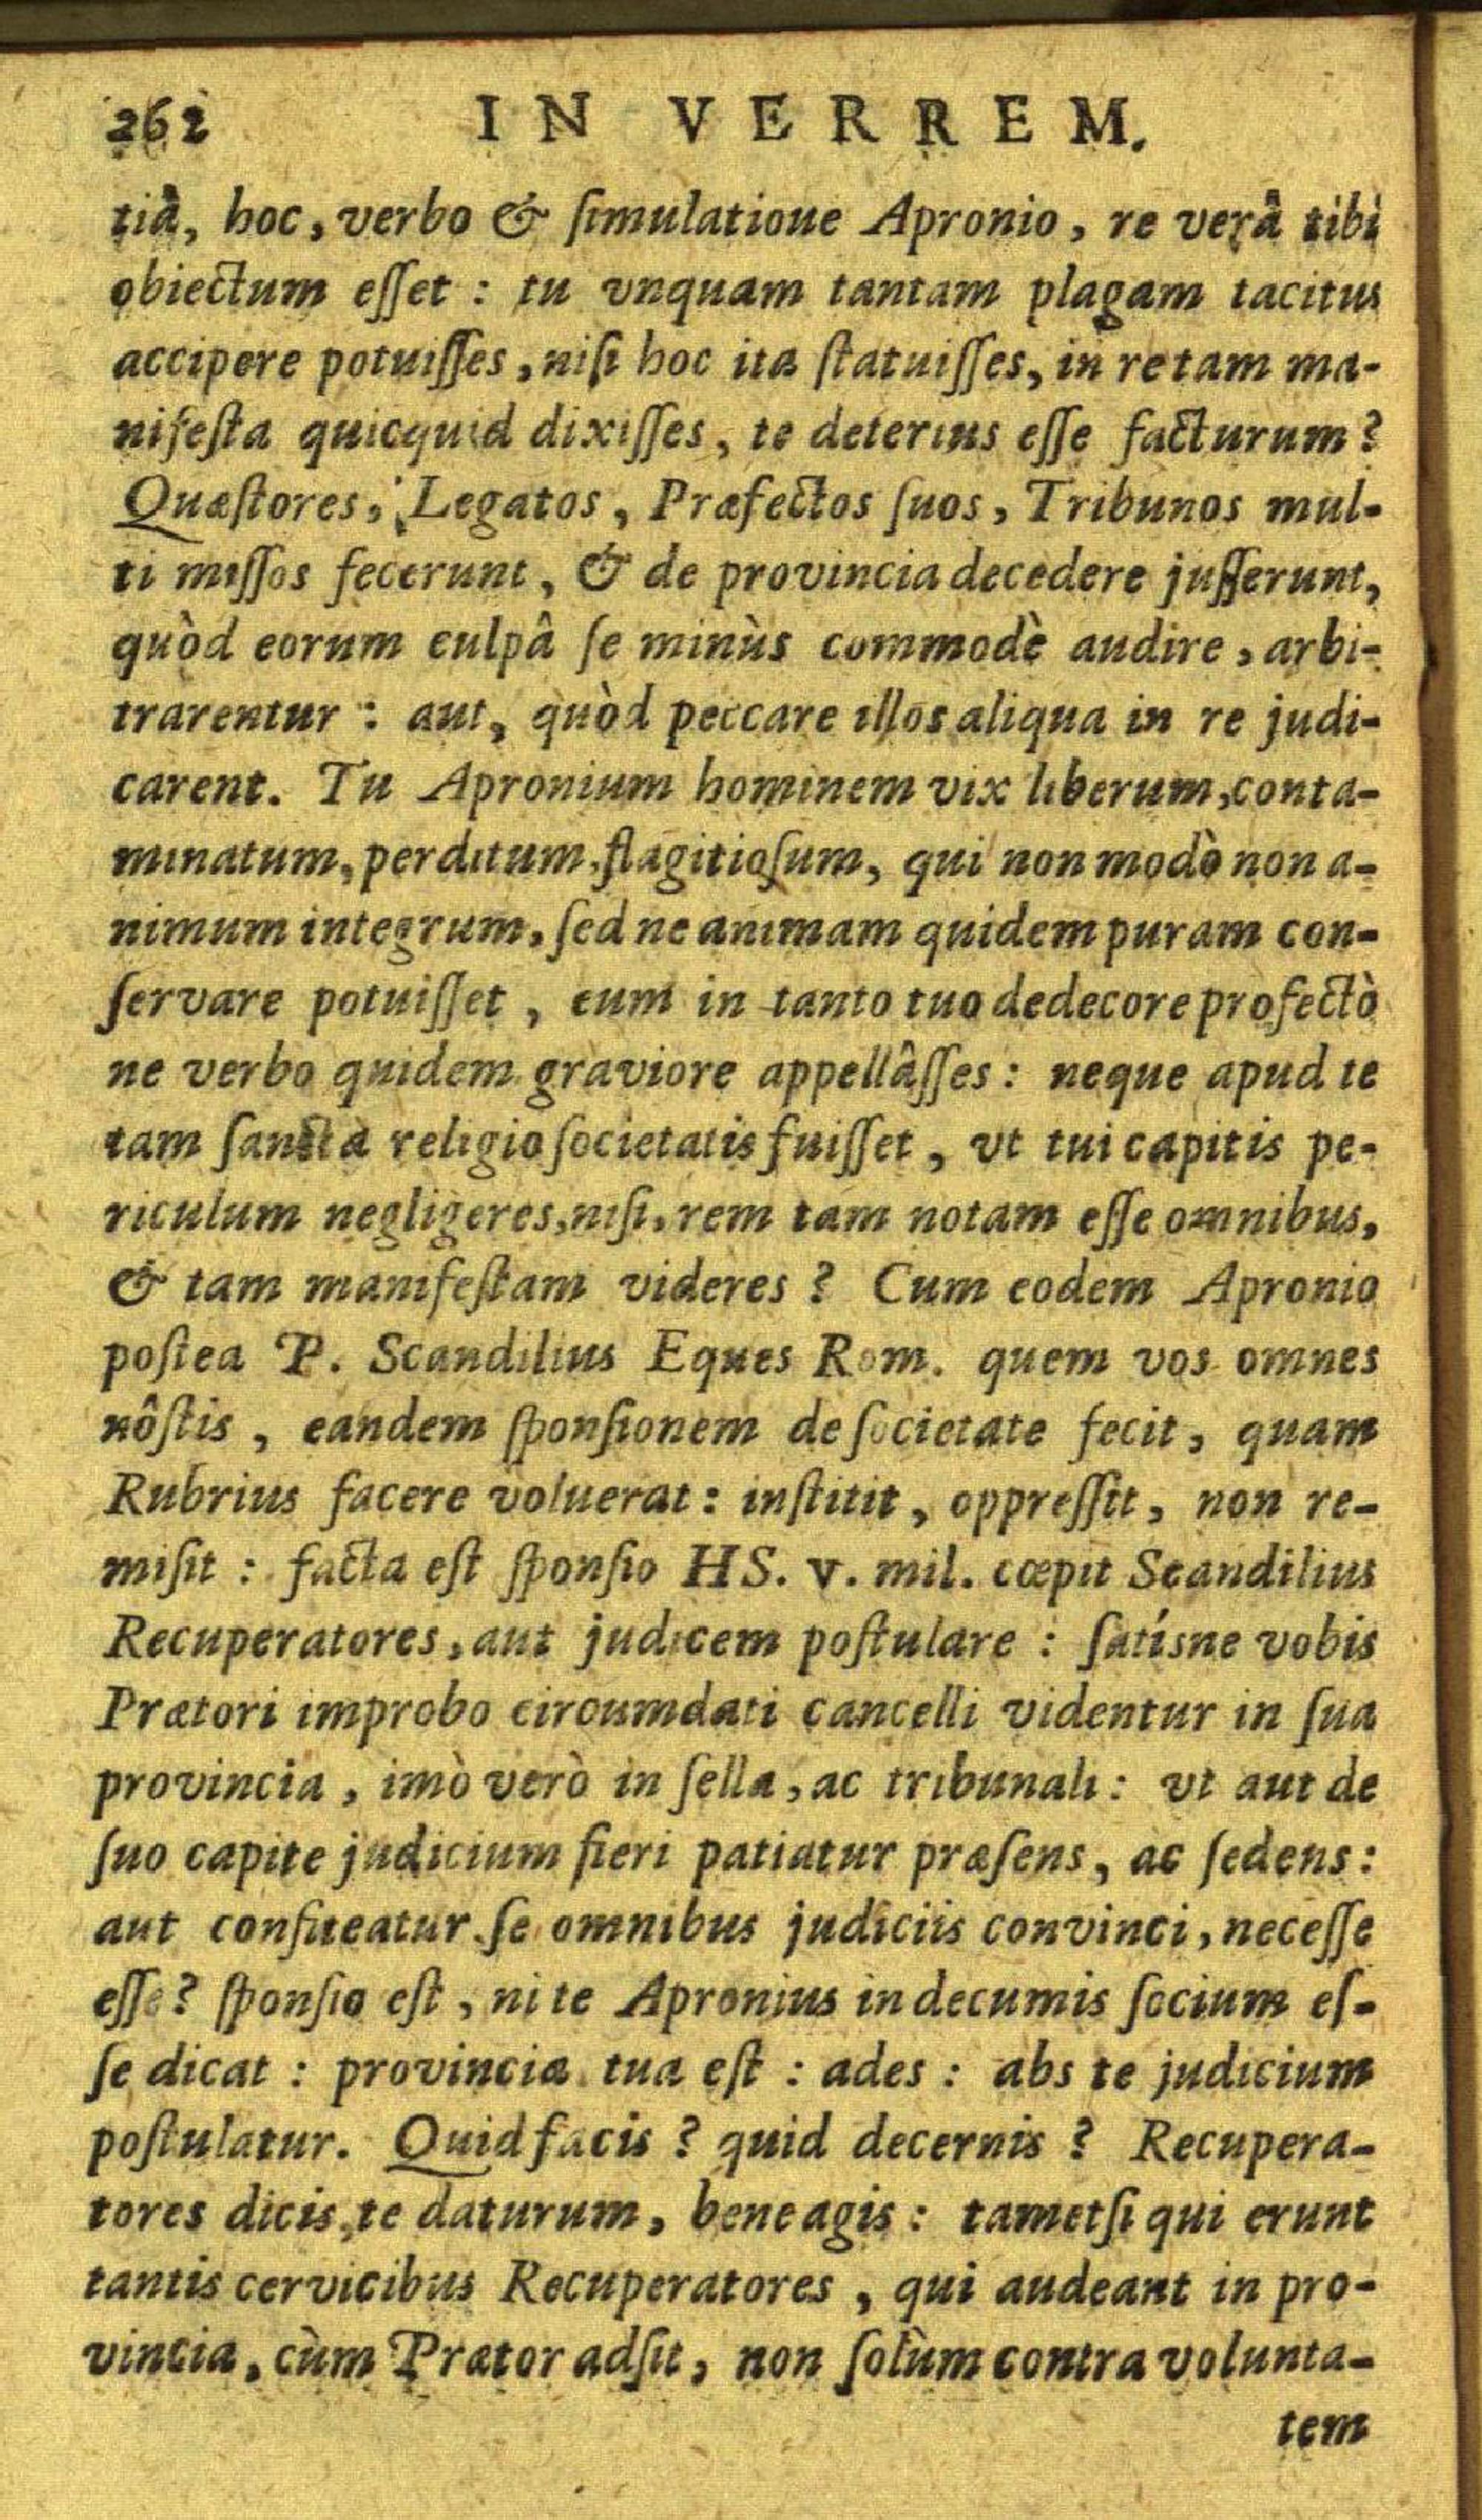 262 IN VERREM.
tiâ, hoc, verbo & ſimulatioue Apronio, re verâ tibi
obiectum eſſet : tu vnquam tantam plagam tacitus
accipere potuiſſes, niſi hoc ita ſtatuiſſes, in re tam ma-
nifeſta quicquid dixiſſes, te deterius eſſe facturum?
Quæſtores, Legatos, Præfectos ſuos, Tribunos mul-
ti miſſos fecerunt, & de provincia decedere juſſerunt,
quòd eorum culpâ ſe minùs commodè audire, arbi-
trarentur : aut, quòd peccare illos aliqua in re judi-
carent. Tu Apronium hominem vix liberum, conta-
minatum, perditum, flagitioſum, qui non modò non a-
nimum integrum, ſed ne animam quidem puram con-
ſervare potuiſſet, eum in tanto tuo dedecore profectò
ne verbo quidem graviore appellâſſes : neque apud te
tam ſancta religio ſocietatis fuiſſet, vt tui capitis pe-
riculum negligeres, niſi, rem tam notam eſſe omnibus,
& tam manifeſtam videres ? Cum eodem Apronio
poſtea P. Scandilius Eques Rom. quem vos omnes
nôſtis, eandem ſponſionem de ſocietate fecit, quam
Rubrius facere voluerat : inſtitit, oppreſſit, non re-
miſit : facta eſt ſponſio HS. v. mil. cœpit Scandilius
Recuperatores, aut judicem poſtulare : ſatísne vobis
Prætori improbo circumdati cancelli videntur in ſua
provincia, imò verò in ſella, ac tribunali : vt aut de
ſuo capite judicium fieri patiatur præſens, ac ſedens :
aut confiteatur ſe omnibus judiciis convinci, neceſſe
eſſe ? ſponſio eſt, ni te Apronius in decumis ſocium eſ-
ſe dicat : provincia tua eſt : ades : abs te judicium
poſtulatur. Quid facis ? quid decernis ? Recupera-
tores dicis, te daturum, bene agis : tametſi qui erunt
tantis cervicibus Recuperatores, qui audeant in pro-
vincia, cùm Prætor adſit, non ſolùm contra volunta-
tem